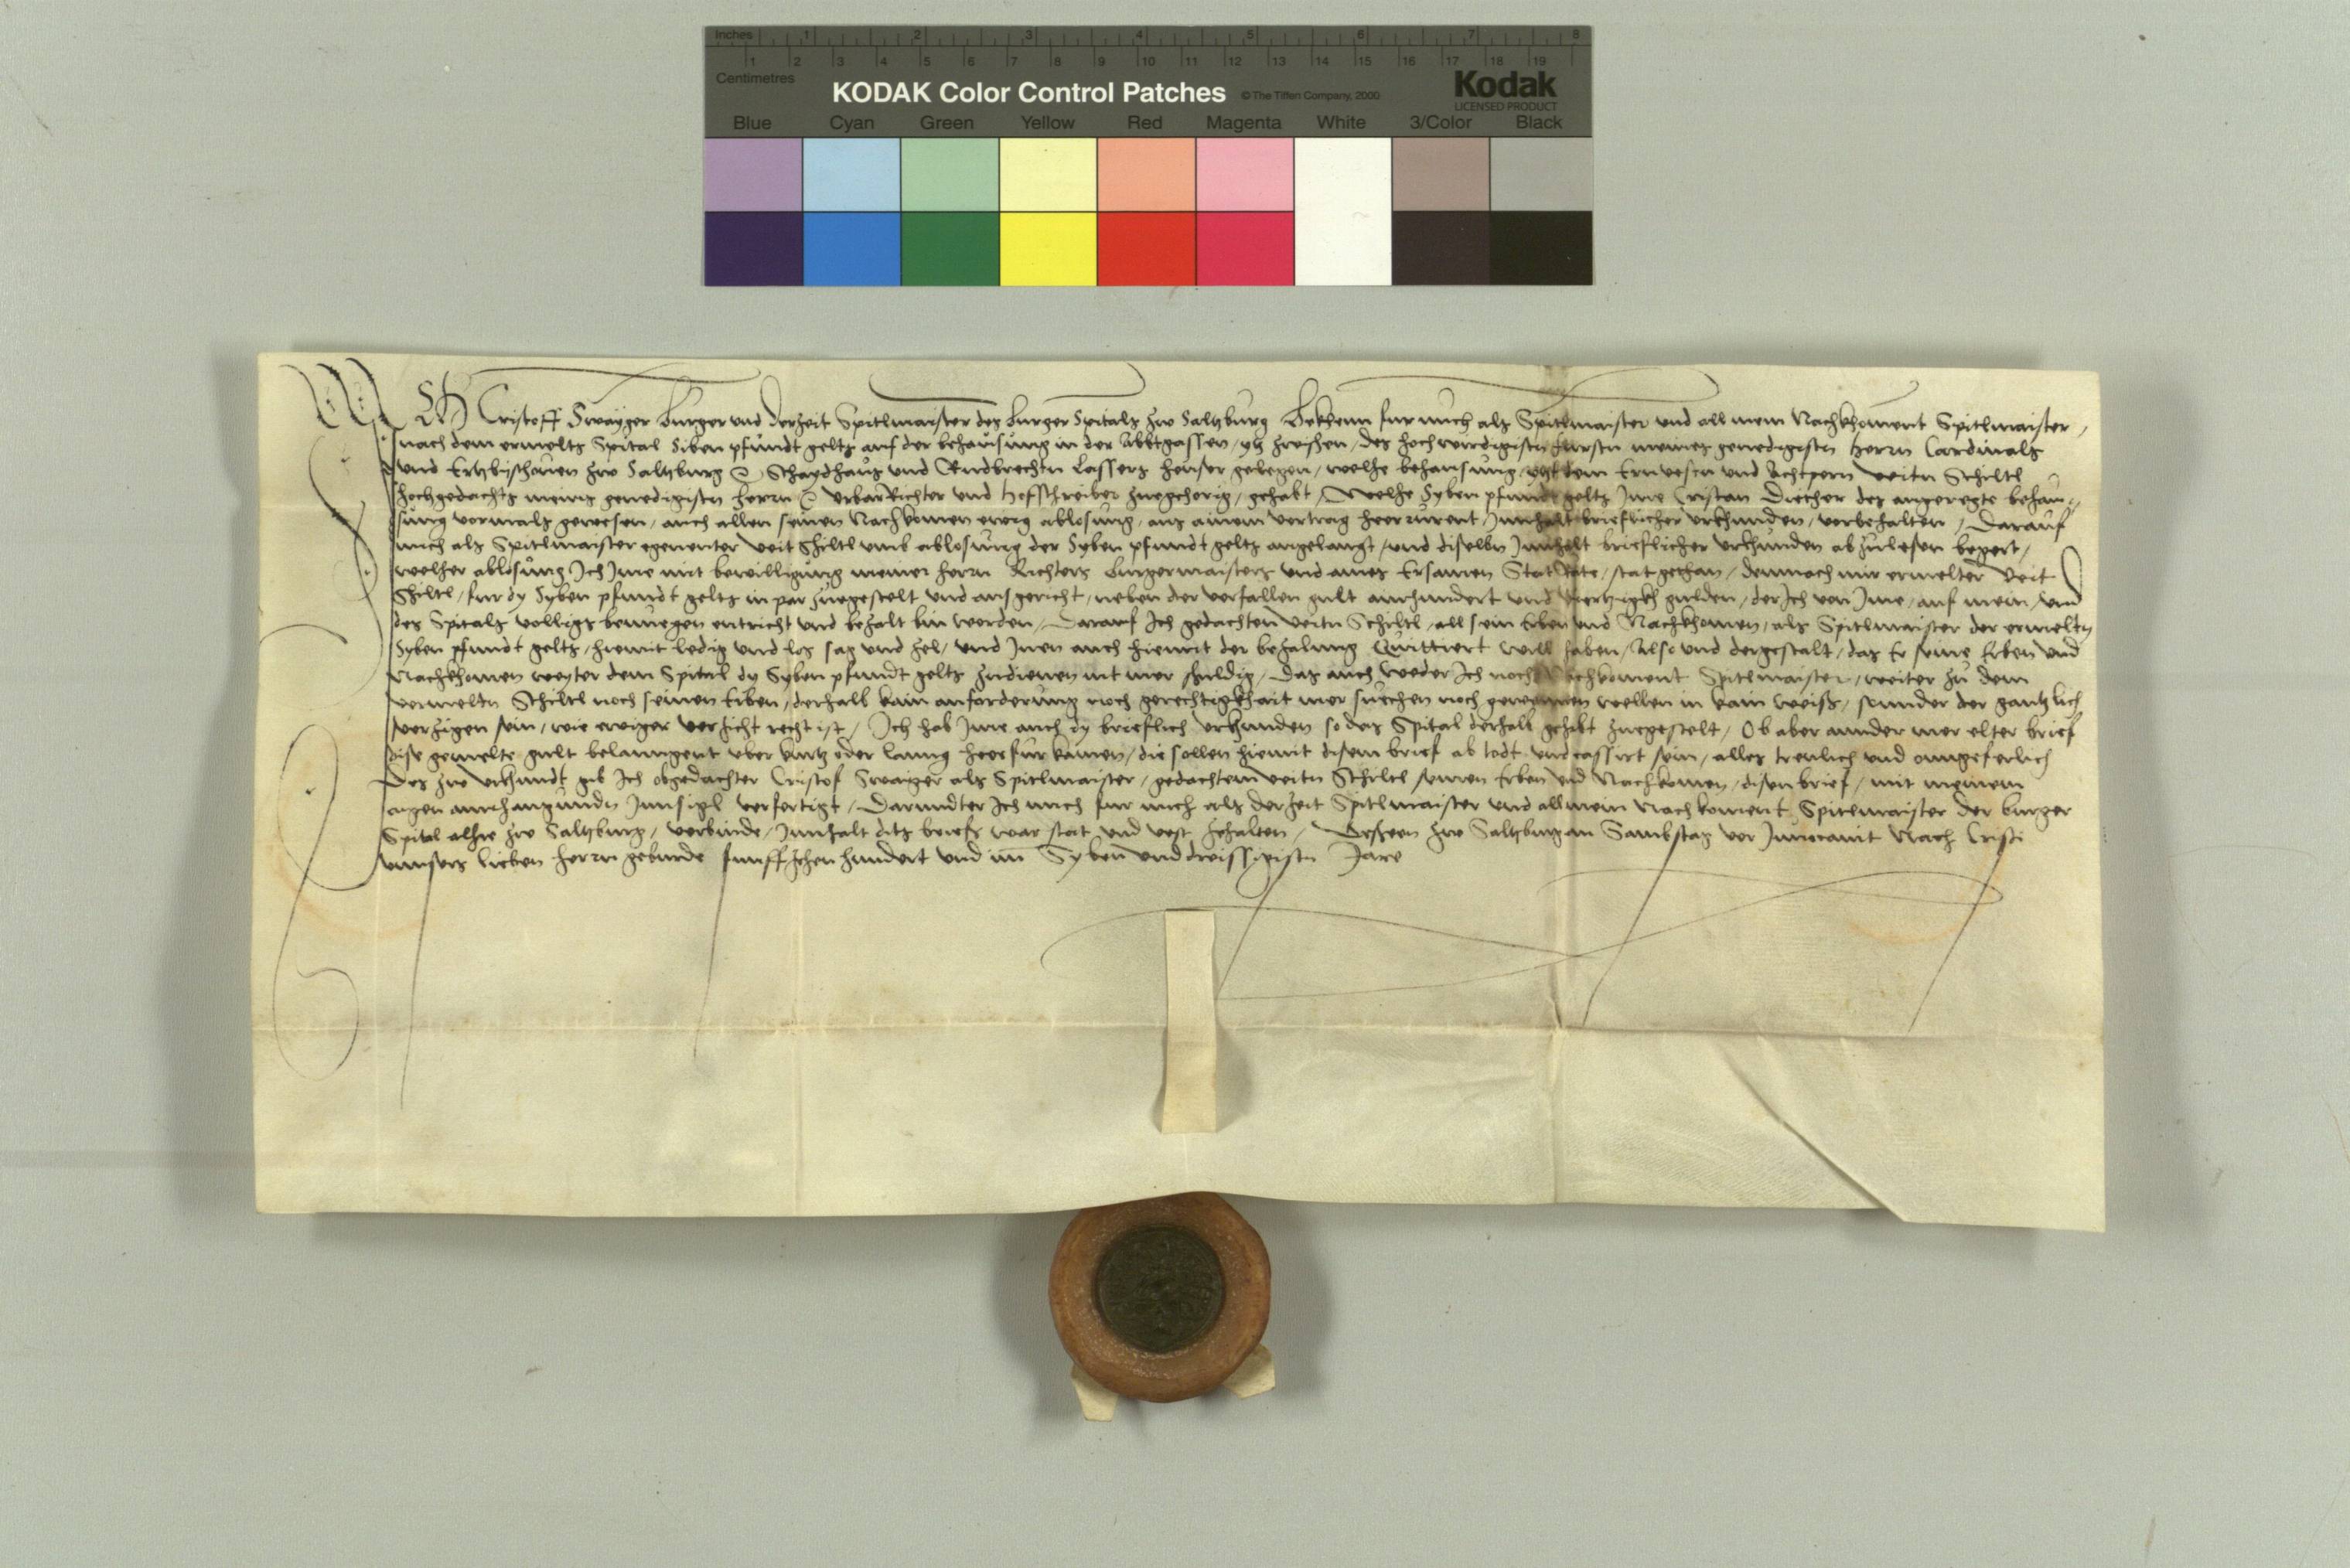 Inches 1 2 3 4 5 6 7 8
Centimetres 1 2 3 4 5 6 7 8 9 10 11 12 13 14 15 16 17 18 19
KODAK Color Control Patches © The Tiffen Company, 2000 Kodak
LICENSED PRODUCT
Blue Cyan Green Yellow Red Magenta White 3/Color Black
Ich Cristoff Swayger Burger und derzeit Spitlmaister des Burger Spitals zw Saltzburg Bekhenn fur mich als Spitlmaister und all mein Nachkhoment Spitlmaister,
nach dem ermelts Spital Siben pfundt gelts auf der behausung in der Abbtgassen, zwischen, des hochwirdigisten fursten meines genedigisten herrn Cardinals
und Ertzbischoven zw Saltzburg Schaydhaus und Rudbrechtn Lassers heuser gelegen, welhe behausung yetzt dem Ernvesten und Achtpern Veitn Schiltl
hochgedachts meins genedigisten herrn Urbar Richter und hofschreiber zuegehorig, gehabt, Welhe Syben pfundt gelts Ime Cristan Diether des angeregte behau
sung vormals gewesen, auch allen seinen Nachkomen ewig ablosung, aus ainem vertrag heerrurent, Innhalt brieflicher urkhunden, vorbehalten, Darauf
mich als Spitlmaister egenenter Veit Schiltl umb ablosung der Syben pfundt gelts angelangt, und dieselbn Innhalt brieflicher urkhunden abzulesen begert,
welher ablosung Ich Ime mit bewilligung meiner herrn Richters Burgermaisters und aines Ersamen Stat Rate, stat gethan, dennoch mir ermelter Veit
Schiltl, fur dy Syben pfundt gelts in par zuegestelt und ausgericht, neben der verfallen gult ainhundert und viertzigkh gulden, der Ich von Ime, auf mein, und
des Spitals volligs benuegen entricht und bezalt bin worden, Darauf Ich gedachten Veitn Schiltl, all sein Erben und Nachkhomen, als Spitlmaister der ermeltn
Syben pfundt gelts, hiemit ledig und los sag und zel, und Inen auch hiemit der bezalung Quittiert will haben, Also und dergestalt, das Er seine Erben und
Nachkhomen weyter dem Spital dy Syben pfundt gelts zudienen nit mer schuldig, Das auch weder Ich noch Nachkoment Spitlmaister, weiter zu dem
vermeltn Schiltl noch seinen Erben, derhalb kain anforderung noch gerechtigkhait mer suechen noch gewynnen wellen in kain weiß, sunder der gantzlich
verzigen sein, wie ewiger verzicht recht ist, Ich hab Ime auch dy brieflich urkhunden so das Spital derhalb gehabt zuegestelt, Ob aber annder mer elter brief
dise gemelte gult belanngent uber kurtz oder lanng heerfur kumen, die sollen hiemit disem brief ab todt und cassirt sein, alles treulich und ungeferlich
Des zw urkhundt gib Ich obgedachter Cristof Swaiger als Spitlmaister, gedachtem Veitn Schiltl seinen Erben und Nachkomen, disen brief, mit meinem
aigen anhangundn Innsigl verfertigt, Darundter Ich mich fur mich als derzeit Spitlmaister und all mein Nachkoment Spitlmaister der burger
Spital alhie zw Saltzburg, verbinde, Innhalt dits briefs war stat und vest zehalten, Beschehen zw Saltzburg an Sambstag vor Invocavit Nach Cristi
unsers lieben herrn geburde funffzehenhundert und im Syben und dreissigistn Jare